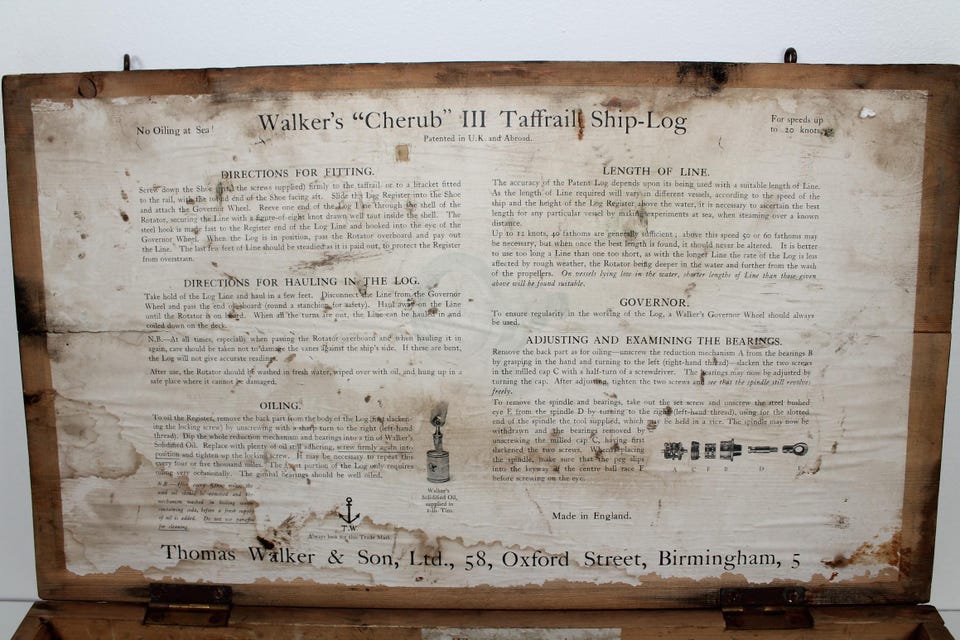 No Oiling at Sea!
Walker's "Cherub" III Taffrail Ship-Log
For speeds up
to 20 knots
Patented in U.K. and Abroad.
DIRECTIONS FOR FITTING.
Screw down the Shoe (with the screws supplied) firmly to the taffrail, or to a bracket fitted
to the rail, with the round end of the Shoe facing aft. Slide the Log Register into the Shoe
and attach the Governor Wheel. Reeve one end of the Log Line through the shell of the
Rotator, securing the Line with a figure-of-eight knot drawn well taut inside the shell. The
steel hook is made fast to the Register end of the Log Line and hooked into the eye of the
Governor Wheel. When the Log is in position, pass the Rotator overboard and pay out
the Line. The last few feet of Line should be steadied as it is paid out, to protect the Register
from overstrain.
DIRECTIONS FOR HAULING IN THE LOG.
Take hold of the Log Line and haul in a few feet. Disconnect the Line from the Governor
Wheel and pass the end on board (round a stanchion for safety). Haul away on the Line
until the Rotator is on board. When all the turns are out, the Line can be hauled in and
coiled down on the deck.
N.B.—At all times, especially when passing the Rotator overboard and when hauling it in
again, care should be taken not to damage the vanes against the ship's side. If these are bent,
the Log will not give accurate readings.
After use, the Rotator should be washed in fresh water, wiped over with oil, and hung up in a
safe place where it cannot be damaged.
OILING.
To oil the Register, remove the back part from the body of the Log (first slacken-
ing the locking screw) by unscrewing with a sharp turn to the right (left-hand
thread). Dip the whole reduction mechanism and bearings into a tin of Walker's
Solidified Oil. Replace with plenty of oil still adhering, screw firmly again into
position and tighten up the locking screw. It may be necessary to repeat this
every four or five thousand miles. The front portion of the Log only requires
oiling very occasionally. The gimbal bearings should be well oiled.
N.B.—
oil should be removed and the
mechanism washed in boiling water
containing soda, before a fresh supply
of oil is added. Do not use paraffin
for cleaning.
Walker's
Solidified Oil,
supplied in
1-lb. Tins.
T.W.
Always look for this Trade Mark
LENGTH OF LINE.
The accuracy of the Patent Log depends upon its being used with a suitable length of Line.
As the length of Line required will vary in different vessels, according to the speed of the
ship and the height of the Log Register above the water, it is necessary to ascertain the best
length for any particular vessel by making experiments at sea, when steaming over a known
distance.
Up to 12 knots, 40 fathoms are generally sufficient; above this speed 50 or 60 fathoms may
be necessary, but when once the best length is found, it should never be altered. It is better
to use too long a Line than one too short, as with the longer Line the rate of the Log is less
affected by rough weather, the Rotator being deeper in the water and further from the wash
of the propellers. On vessels lying low in the water, shorter lengths of Line than those given
above will be found suitable.
GOVERNOR.
To ensure regularity in the working of the Log, a Walker's Governor Wheel should always
be used.
ADJUSTING AND EXAMINING THE BEARINGS.
Remove the back part as for oiling—unscrew the reduction mechanism A from the bearings B
by grasping in the hand and turning to the left (right-hand thread)—slacken the two screws
in the milled cap C with a half-turn of a screwdriver. The bearings may now be adjusted by
turning the cap. After adjusting, tighten the two screws and see that the spindle still revolves
freely.
To remove the spindle and bearings, take out the set screw and unscrew the steel bushed
eye E from the spindle D by turning to the right (left-hand thread), using for the slotted
end of the spindle the tool supplied, which may be held in a vice. The spindle may now be
withdrawn and the bearings removed by
unscrewing the milled cap C, having first
slackened the two screws. When replacing
the spindle, make sure that the peg slips
into the keyway of the centre ball race F
before screwing on the eye.
A C F B D E
Made in England.
Thomas Walker & Son, Ltd., 58, Oxford Street, Birmingham, 5